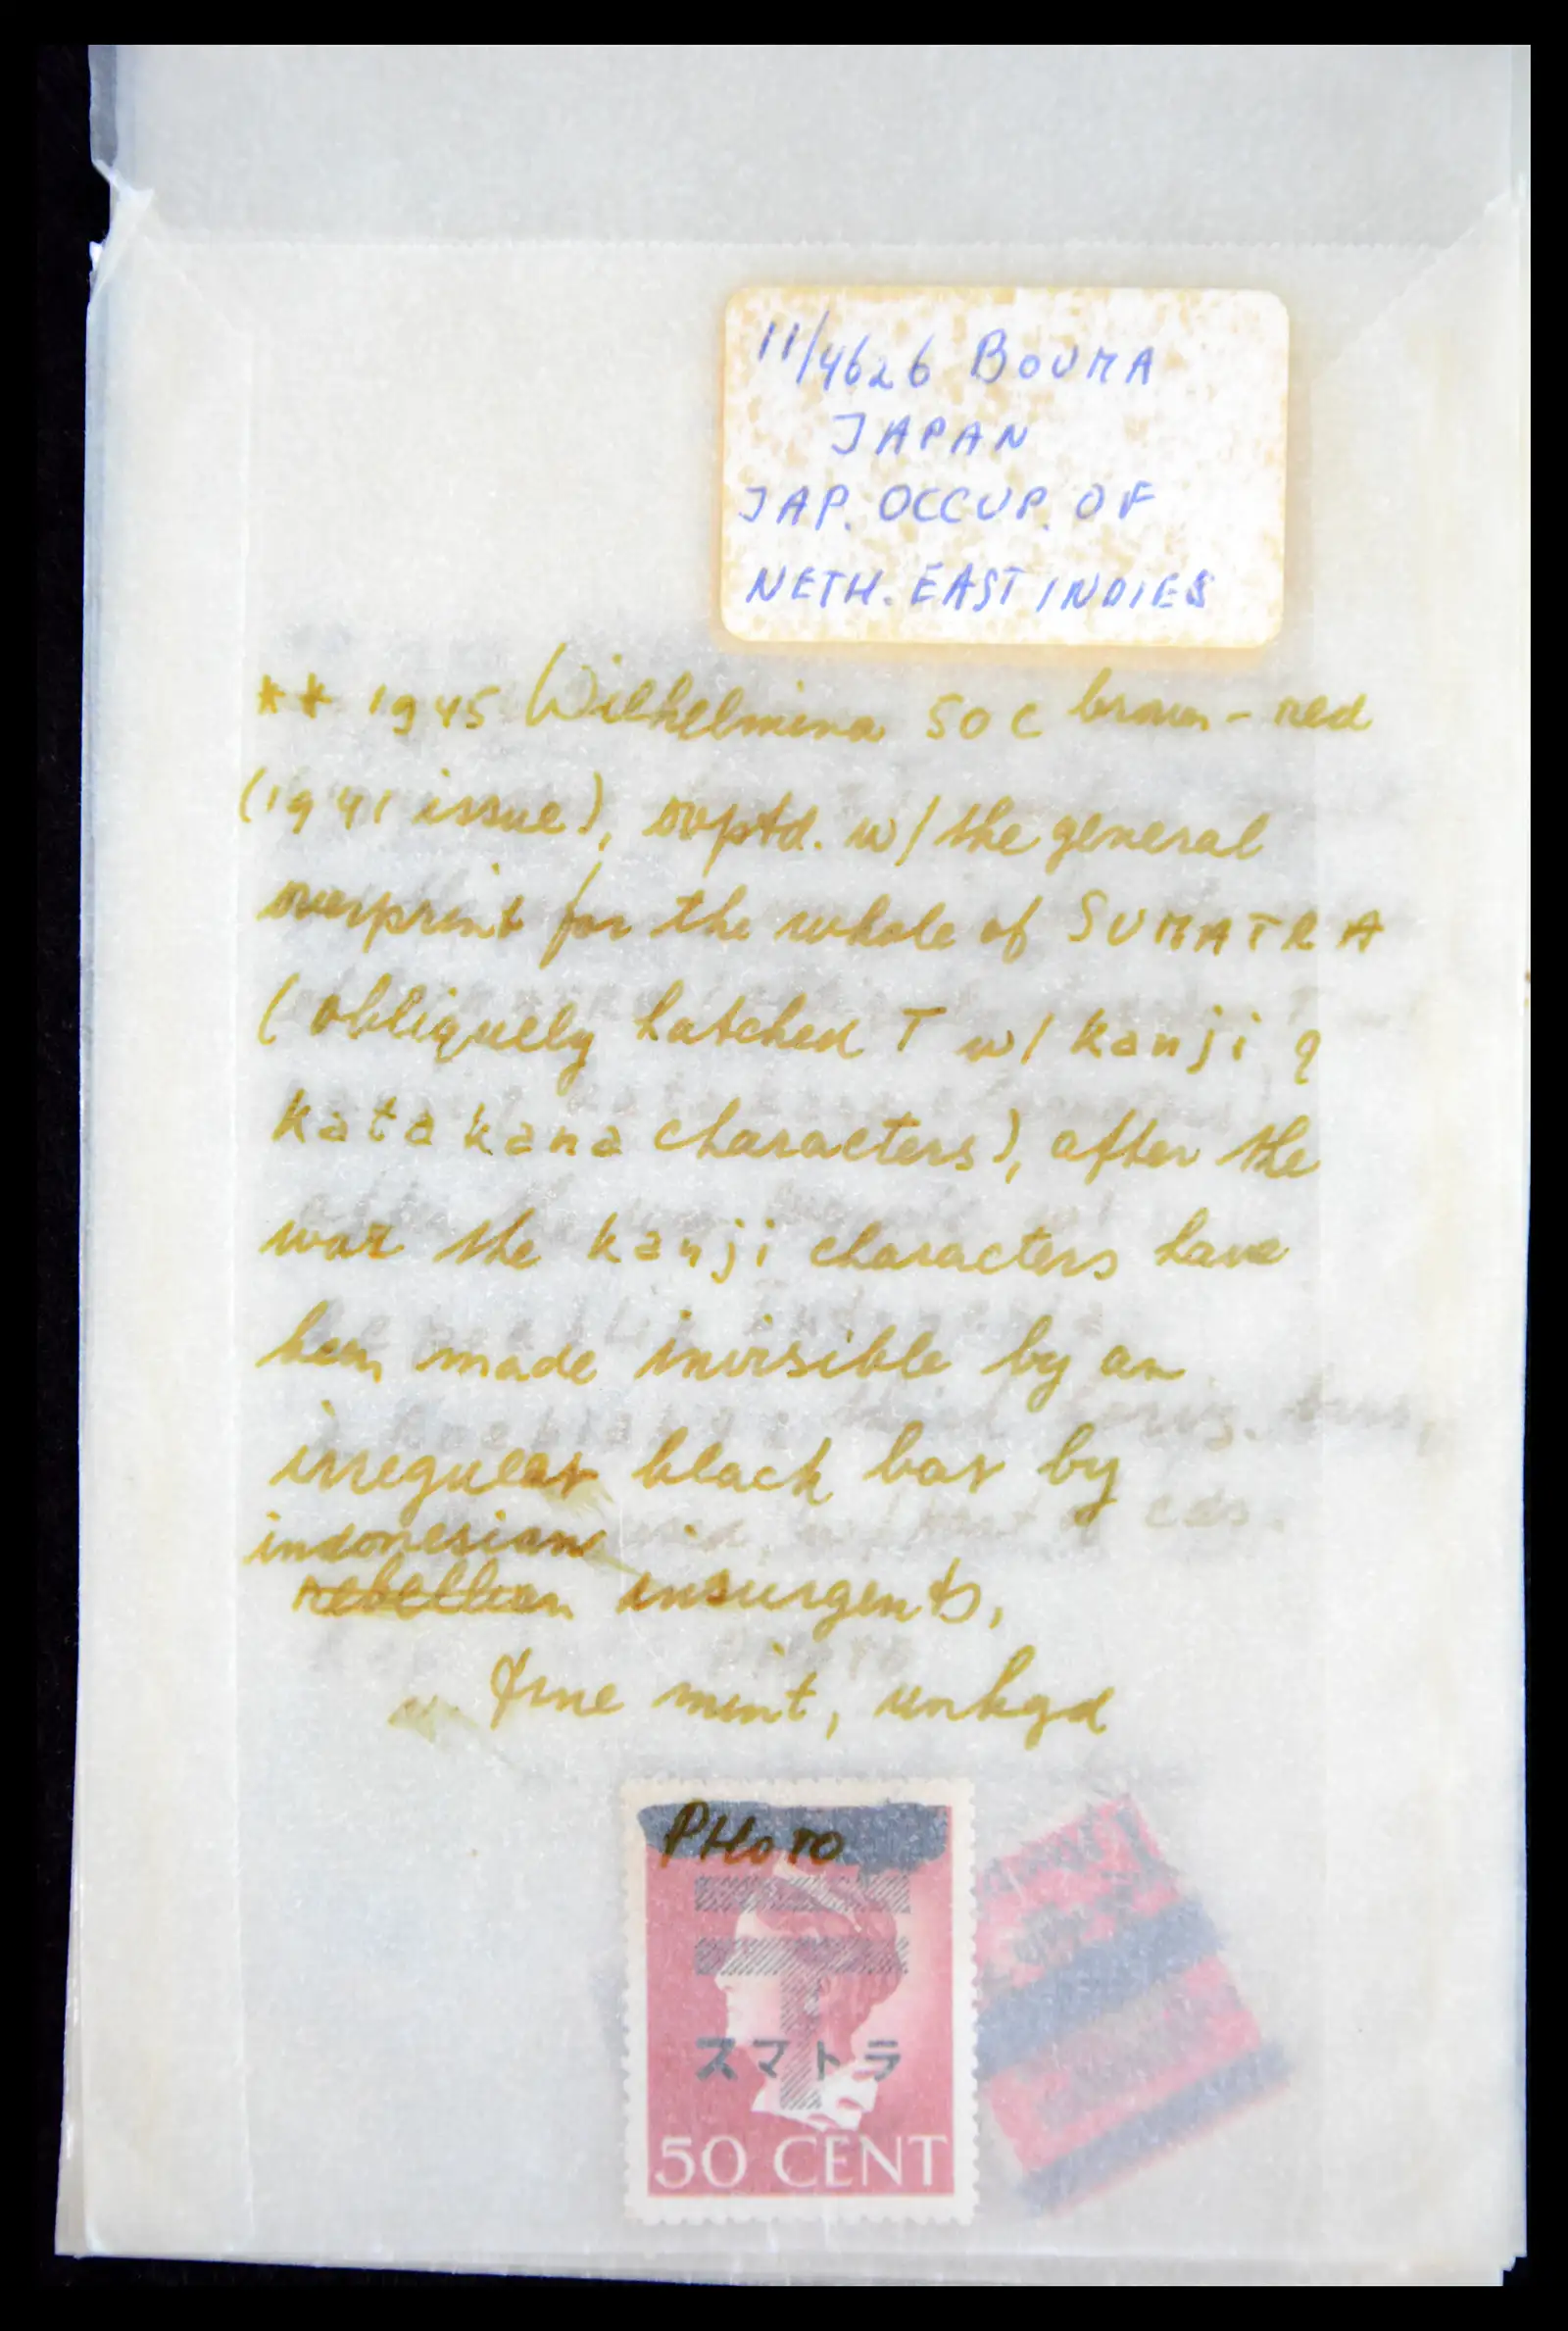 11/4626 BOUMA
JAPAN
JAP. OCCUP. OF
NETH. EAST INDIES
** 1945 Wilhelmina 50 c brown-red
(1941 issue), ovptd. w/ the general
overprint for the whole of SUMATRA
(obliquely hatched T w/ kanji &
katakana characters), after the
war the kanji characters have
been made invisible by an
irregular black bar by
indonesian
rebellion insurgents,
fine mint, unhgd
PHOTO
スマトラ
50 CENT